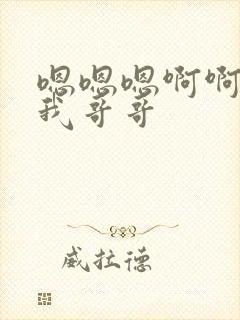 嗯嗯嗯啊啊
我哥哥
威拉德